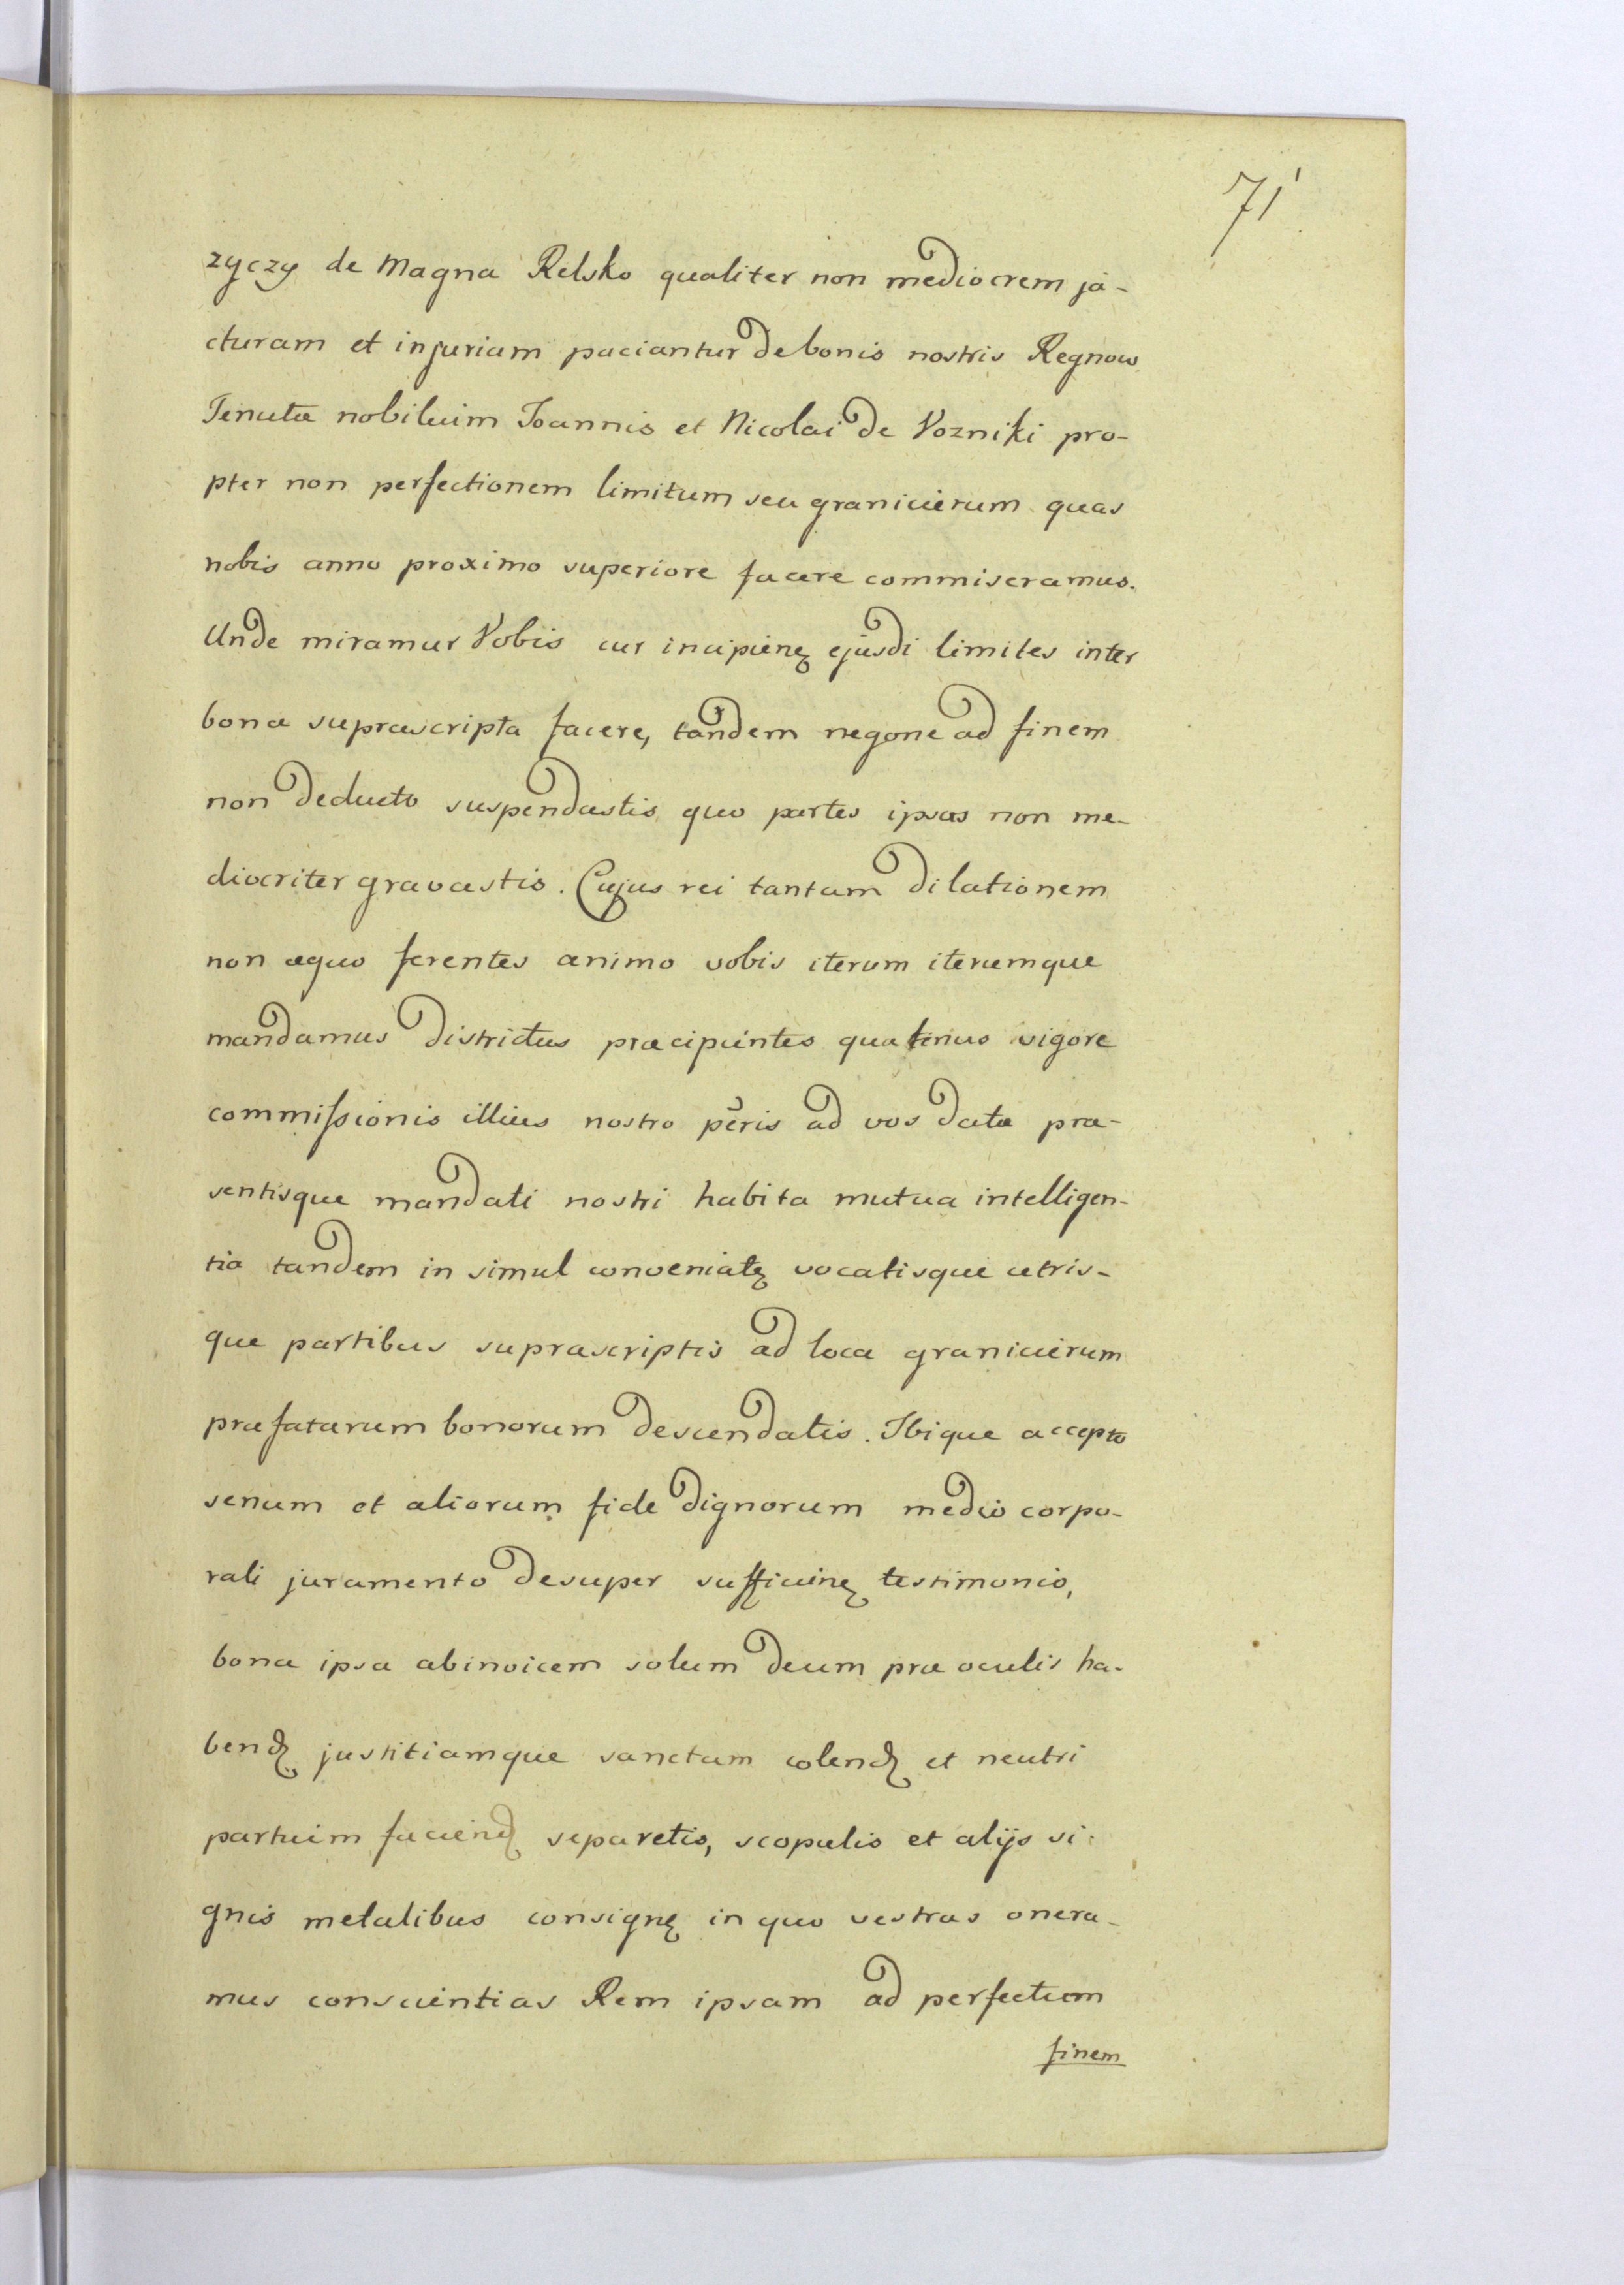 71'
zyczy de Magna Relsko qualiter non mediocrem ja-
cturam et injuriam paciantur de bonis nostris Regnow
Tenutæ nobilium Joannis et Nicolai de Vozniki pro-
pter non perfectionem limitum seu granicierum quas
nobis anno proximo superiore facere commiseramus.
Unde miramur Vobis cur incipienꝫ ejusdi limites inter
bona supræscripta facere, tandem negone ad finem
non deducto suspendastis quo partes ipsas non me-
diocriter gravastis. Cujus rei tantam dilationem
non æquo ferentes animo vobis iterum iterumque
mandamus districtus præcipientes quatenus vigore
commissionis illius nostro peris̄ ad vos datæ præ-
sentisque mandati nostri habita mutua intelligen-
tia tandem in simul conveniatꝫ vocatisque utris-
que partibus supræscriptis ad loca granicierum
præfatarum bonorum descendatis. Ibique accepto
senum et aliorum fide dignorum medio corpo-
rali juramento desuper sufficienꝫ testimonio,
bona ipsa abinvicem solum deum præ oculis ha-
bendꝫ justitiamque sanctam colendꝫ et neutri
partium faciendꝫ separetis, scopulis et alijs si-
gnis metalibus consignꝫ in quo vestras onera-
mus conscientias Rem ipsam ad perfectum
finem